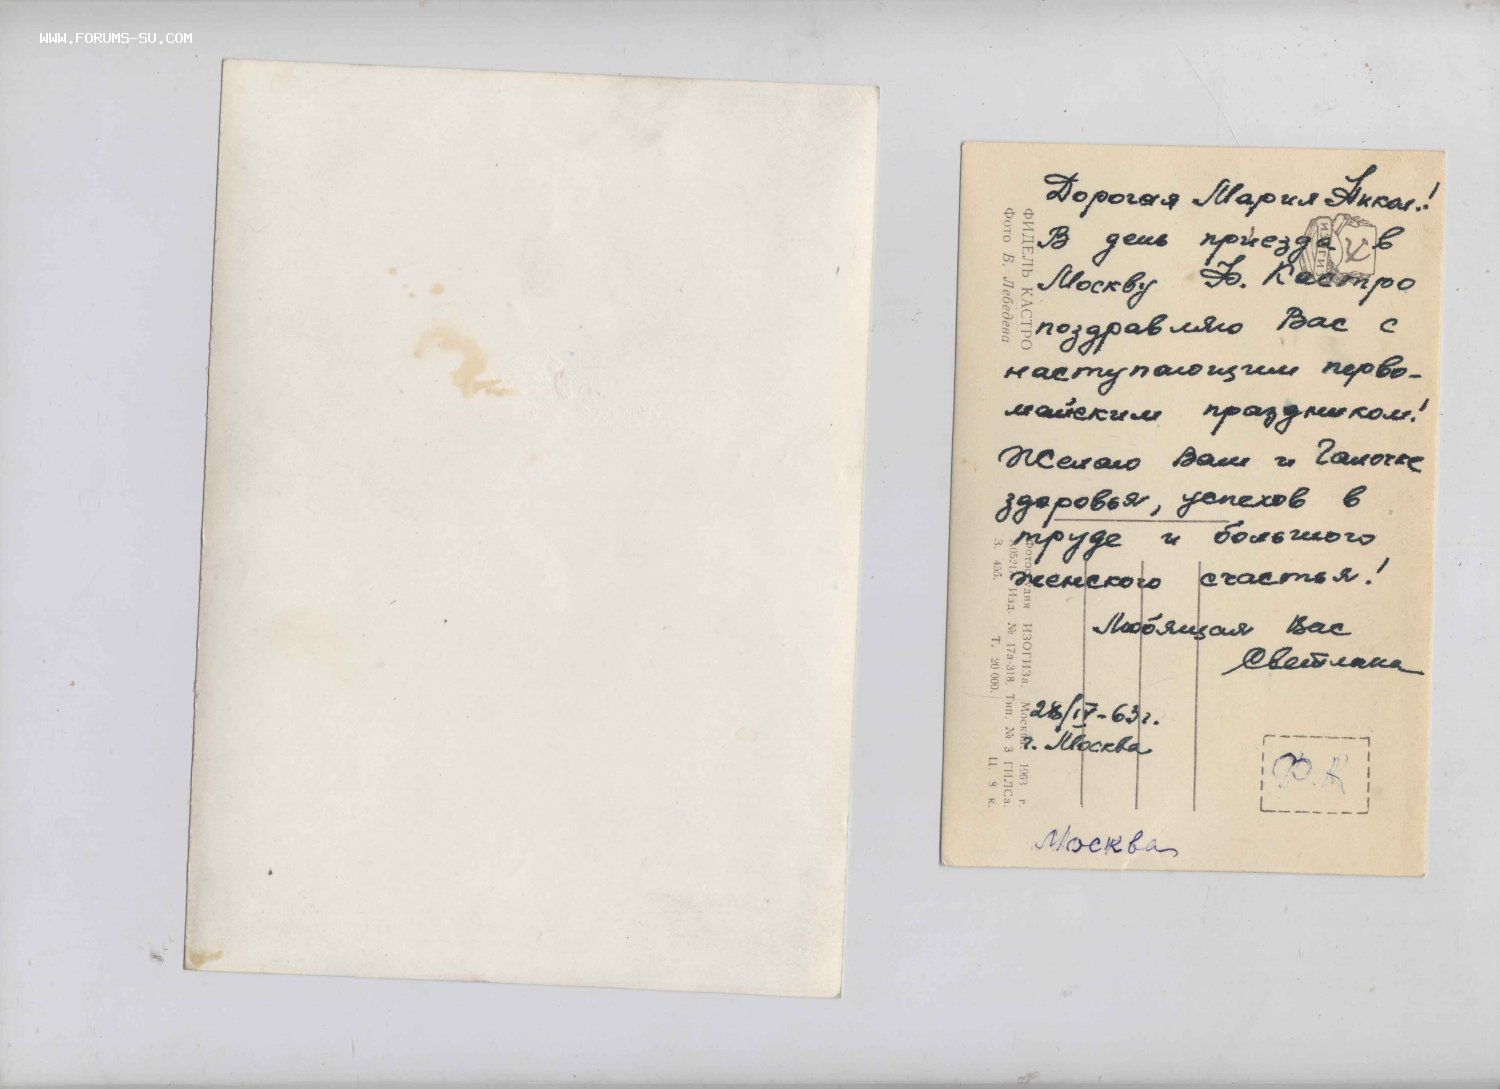 WWW.FORUMS-SU.COM
Дорогая Мария Никол.!
В день приезда в
Москву Ф. Кастро
поздравляю Вас с
наступающим перво-
майским праздником!
Желаю Вам и Галочке
здоровья, успехов в
труде и большого
женского счастья!
Любящая Вас
Светлана
28/IV-63г.
г. Москва
Москва
Ф.К
ФИДЕЛЬ КАСТРО
Фото В. Лебедева
ИЗОГИЗ
Фотостудия ИЗОГИЗа. Москва. 1963 г.
Изд. № 17а-318. Тип. № 3 ГИЛСа.
З. 455. Т. 20 000. Ц. 8 к.